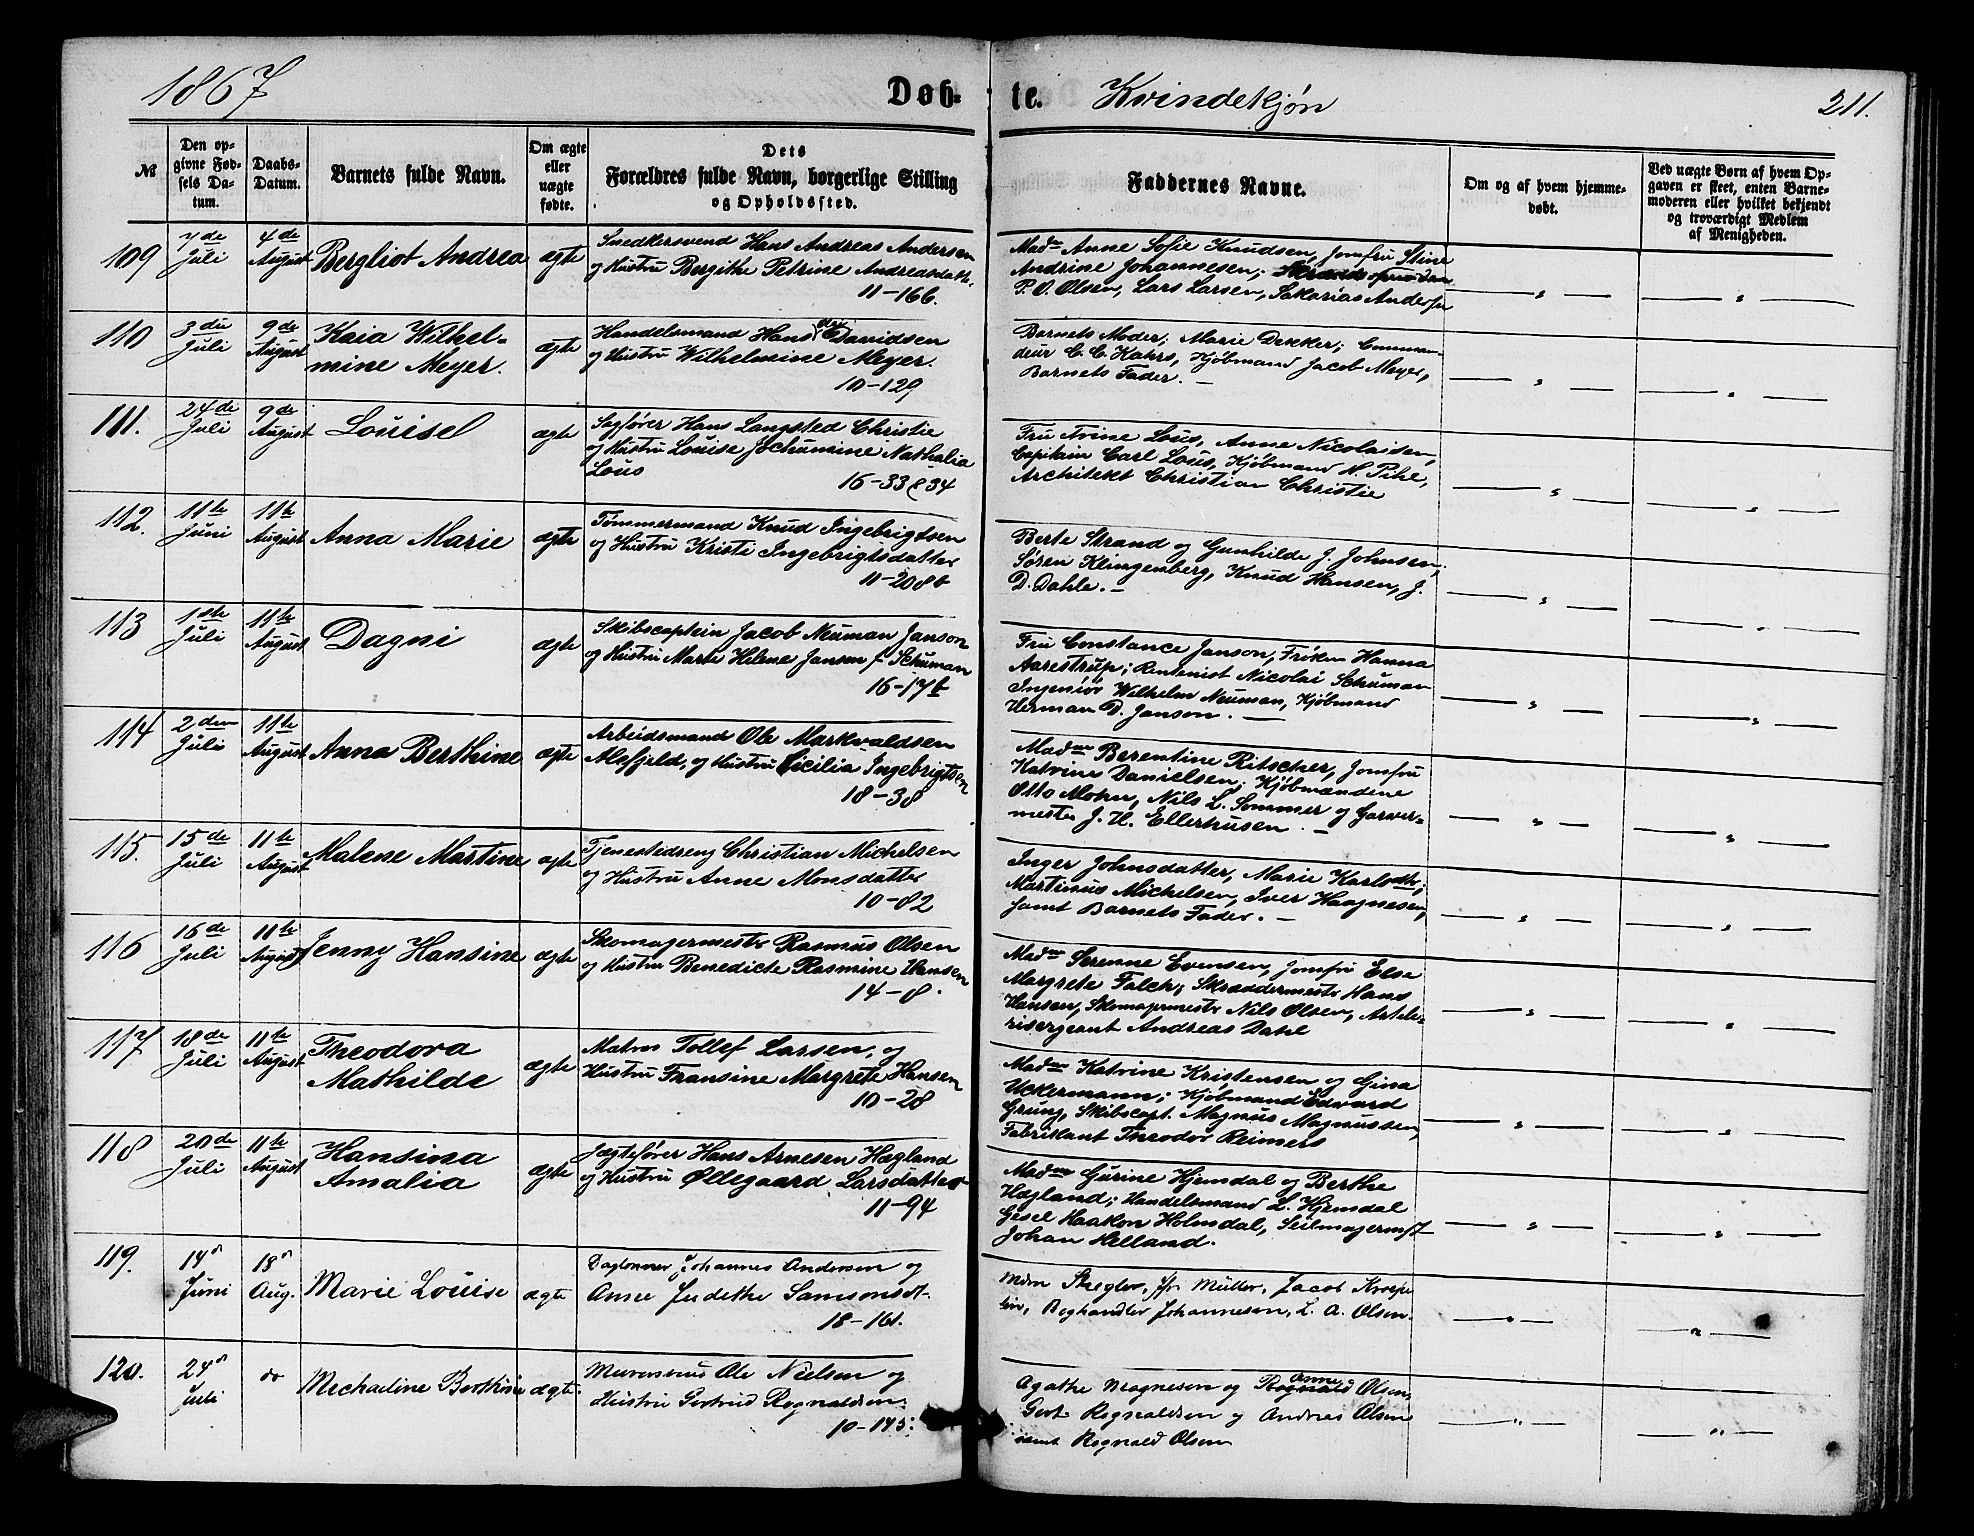 1867
Døb- te. Kvindekjøn
211.
№
Den opgivne Fødsels Datum.
Daabs-Datum.
Barnets fulde Navn.
Om ægte eller uægte fødte.
Dets Forældres fulde Navn, borgerlige Stilling og Opholdssted.
Faddernes Navne.
Om og af hvem hjemmedøbt.
Ved uægte Børn af hvem Opgaven er skeet, enten Barnemoderen eller hvilket bekjendt og troværdigt Medlem af Menigheden.
109 7de Juli 4de August Bergliot Andrea ægte
Snedkersvend Hans Andreas Andersen
og Hustru Bergithe Petrine Andreasdatt.
11-166.
Madm Anne Sofie Knudsen, Jomfru Stine
Andrine Johannesen;
P. O. Olsen, Lars Larsen, Sakarias Andersen
110 3die Juli 9de August Kaia Wilhel-
mine Meyer. ægte
Handelsmand Hans Davidsen
og Hustru Wilhelmine Meyer.
10-129
Barnets Moder; Marie Dekker; Comman-
deur C. C. Kahrs, Kjøbmand Jacob Meyer,
Barnets Fader. -
111. 24de Juli 9de August Louise ægte
Sagfører Hans Langsted Christie
og Hustru Louise Jochumine Nathalia
Lous
16-33 & 34
Fru Trine Lous, Anne Nicolaisen,
Capitain Carl Lous, Kjøbmand N. Pihl,
Architekt Christian Christie
112. 11te Juni 11te August Anna Marie ægte
Tømmermand Knud Ingebrigtsen
og Hustru Kristi Ingebrigtsdatter
11-208b
Berte Strand og Gunhilde J. Johnsen;
Søren Klingenberg, Knud Hansen, J.
D. Dahle. -
113 1ste Juli 11te August Dagni ægte
Skibscaptein Jacob Neuman Janson
og Hustru Marie Helene Janson f. Schuman
16-17b
Fru Constance Janson, Frøken Hanna
Aarestrup; Rentenist Nicolai Schuman
Ingeniør Wilhelm Neuman, Kjøbmand
Herman D. Janson. -
114 2den Juli 11te August Anna Berthine ægte
Arbeidsmand Ole Markvaldsen
Alefjeld, og Hustru Cicilia Ingebrigtsen
18-38
Madm Berentine Ritscher, Jomfru
Katrine Danielsen; Kjøbmændene
Otto Mohn, Nils L. Sommer og Garver-
mester J. H. Ellerhusen. -
115. 15de Juli 11te August Malene Martine ægte
Tjenestedreng Christian Michelsen
og Hustru Anne Monsdatter
10-82
Inger Johnsdatter, Marie Karlsdtr;
Martinus Michelsen, Iver Haagnesen,
samt Barnets Fader. -
116 16de Juli 11te August Jenny Hansine ægte
Skomagermester Rasmus Olsen
og Hustru Benedicte Rasmine Hansen
14-8.
Madm Serenne Evensen, Jomfru Else
Margrete Falch; Skræddermester Hans
Hansen, Skomagermester Nils Olsen, Artile-
risergeant Andreas Dahl
117 18de Juli 11te August Theodora
Mathilde ægte
Matros Tollef Larsen, og
Hustru Fransine Margrete Hansen
10-28
Madm Katrine Kristensen og Gina
Uckermann; Kjøbmand Edvard
Grung, Skibscapt. Magnus Magnussen,
Fabrikant Theodor Reimers
118 20de Juli 11te August Hansina
Amalia ægte
Jægtefører Hans Arnesen Hægland
og Hustru Øllegaard Larsdatter
11-94
Madm Gurine Hjemdal og Berthe
Hægland; Handelsmand L. Hjemdal
Gesel Haakon Holmdal, Seilmagermst
Johan Helland.
119. 14d Juni 18d Aug. Marie Louise ægte
Daglønner Johannes Andersen og
Anne Judithe Samsonsdt.
18-161.
Mdm Stegler, Jfr Müller, Jacob Kroepe
lin, Boghandler Johannesen, L. A. Olsen.
120. 24d Juli do Michaeline Berthine ægte
Murersvend Ole Nielsen og
Hustru Gertrud Rognaldsen.
10-145.
Agathe Magnesen og Anne Olsen,
Gert Rognaldsen og Andreas Olsen
samt Rognald Olsen